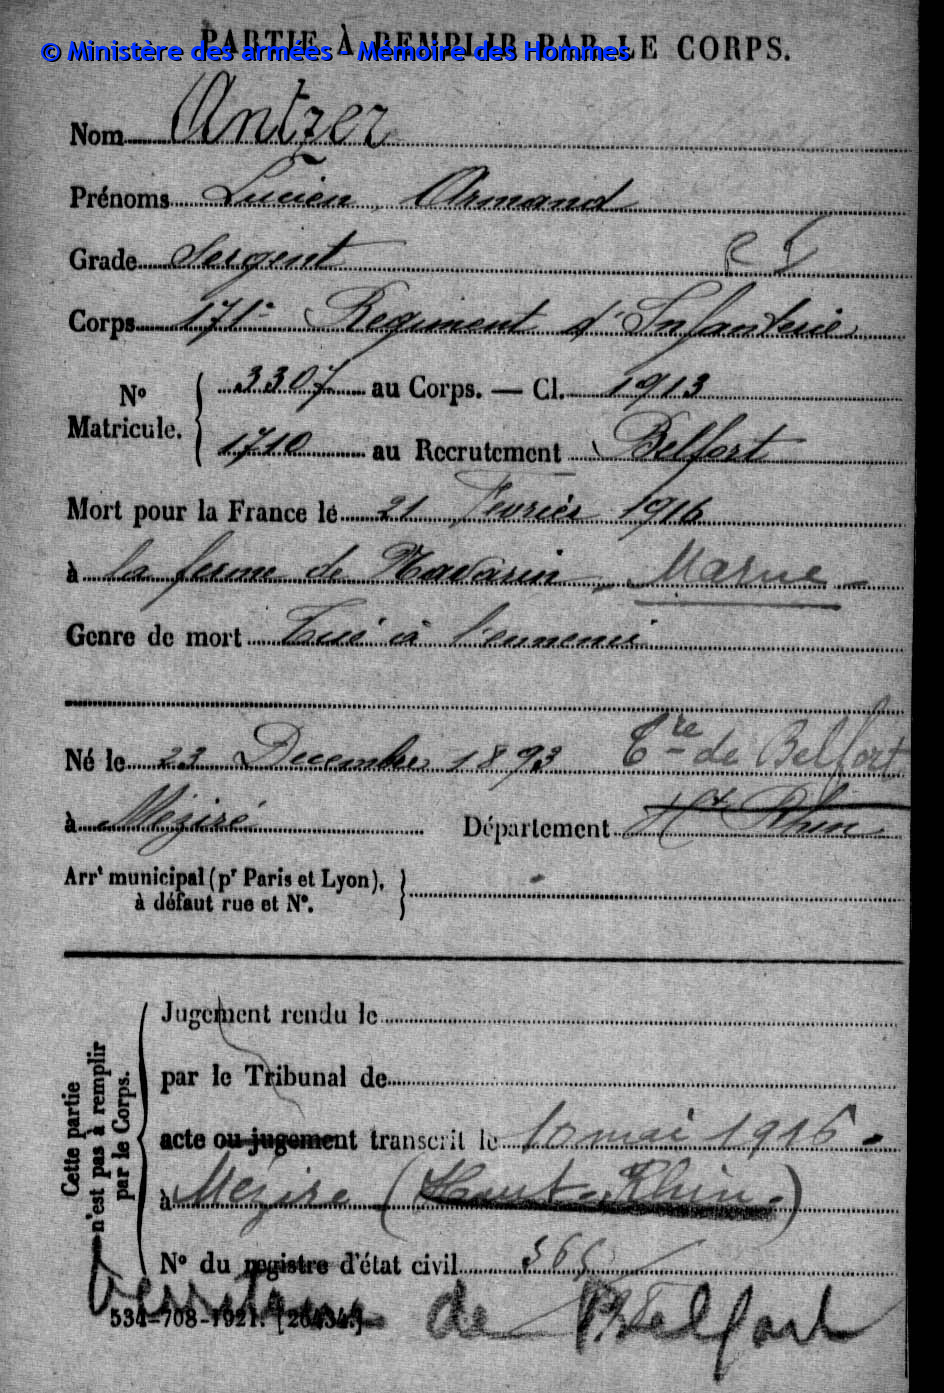 PARTIE À REMPLIR PAR LE CORPS.
© Ministère des armées - Mémoire des Hommes
Nom Antzer
Prénoms Lucien Armand
Grade Sergent
Corps 171e Régiment d'Infanterie
No Matricule. 3307 au Corps. — Cl. 1913
1710 au Recrutement Belfort
Mort pour la France le 21 Février 1916
à la ferme de Navarin - Marne -
Genre de mort Tué à l'ennemi
Né le 23 Decembre 1893 Tre de Belfort
à Méziré Département Ht Rhin
Arrt municipal (pr Paris et Lyon), à défaut rue et No.
Cette partie n'est pas à remplir par le Corps.
Jugement rendu le
par le Tribunal de
acte ou jugement transcrit le 10 mai 1916 -
à Mézire (Haut-Rhin.)
No du registre d'état civil
Territoire de Belfort
534-708-1921. [26434.]